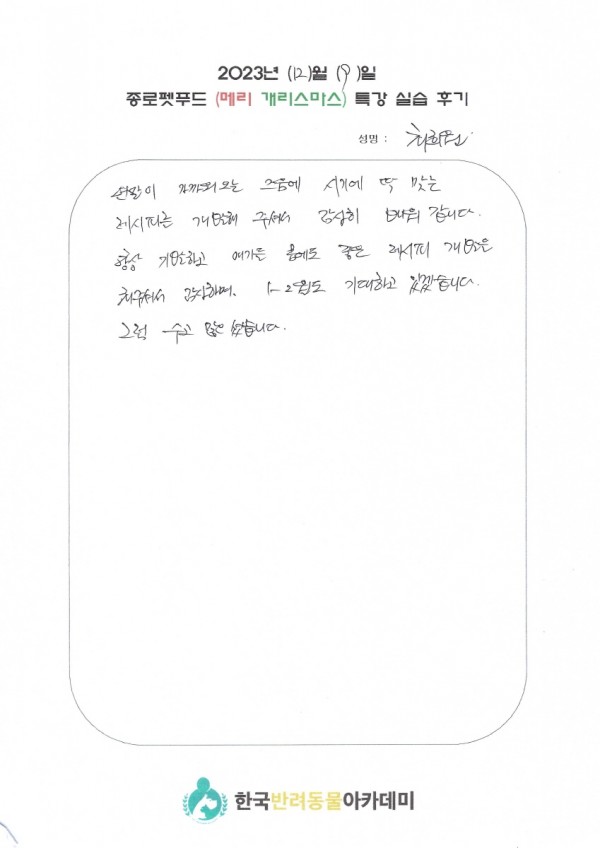 2023년 (12)월 (9)일
종로펫푸드 (메리 개리스마스) 특강 실습 후기
성명 :
연말이 가까워 오는 즈음에 시기에 딱 맞는
레시피를 개발해 주셔서 감사히 배워 갑니다.
항상 기발하고 좋은 레시피 개발을
해주셔서 감사하며, 1-2월도 기대하고 있겠습니다.
그럼 수고 많으셨습니다.
한국반려동물아카데미